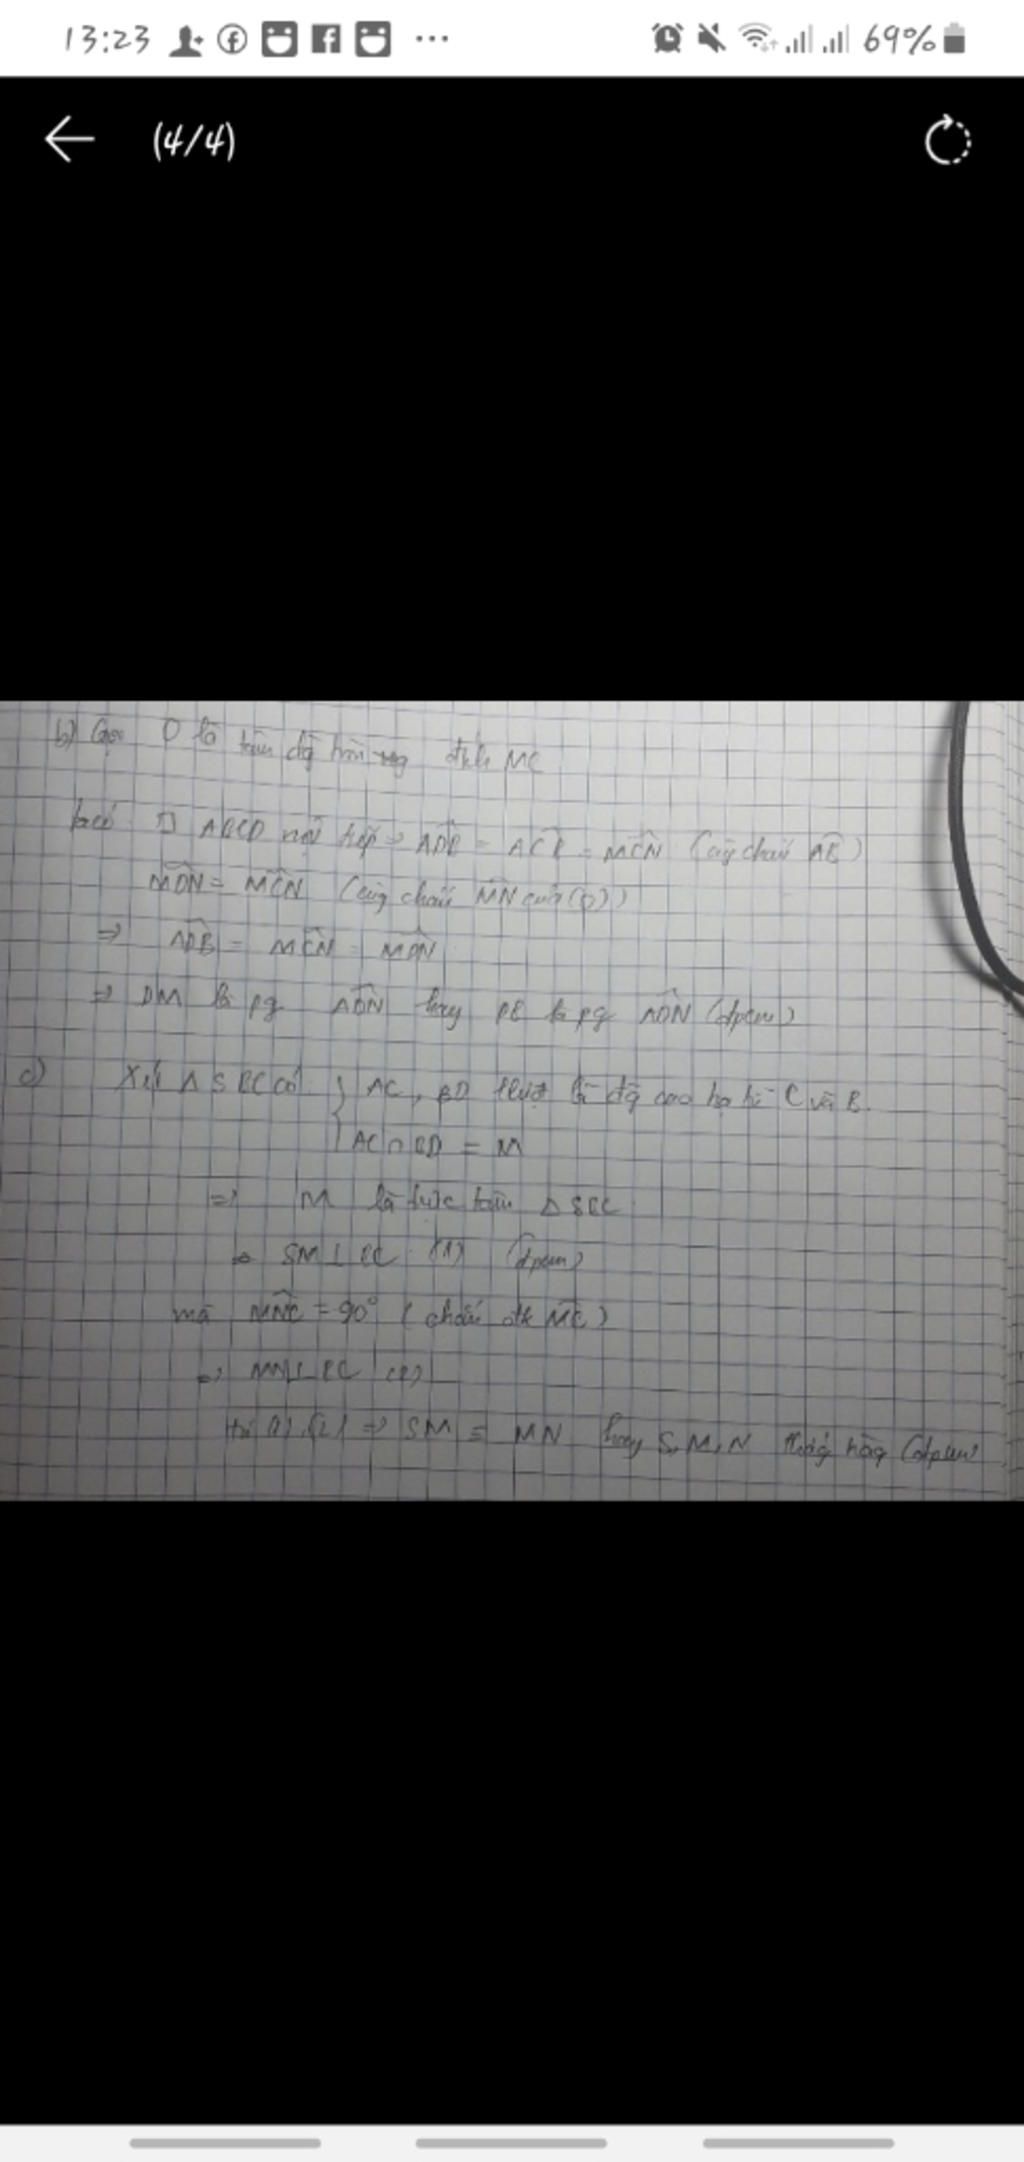 13:23 ... 69%
(4/4)
b) Gọi O là tâm đg tròn đkh MC
ta có ABCD nội tiếp => ADB = ACB = MCN (cùg chắn AB)
MDN = MCN (cùg chắn MN của (O))
=> ADB = MCN = MDN
=> DM là pg ADN hay DB là pg ADN (đpcm)
c) Xét Δ SBC có { AC, BD lượt là đg cao hạ từ C và B.
AC ∩ BD = M
=> M là trực tâm Δ SBC
=> SM ⊥ BC (1) (đpcm)
mà MNC = 90° (chắn đk MC)
=> MN ⊥ BC (2)
từ (1), (2) => SM ≡ MN hay S, M, N thẳng hàng (đpcm)